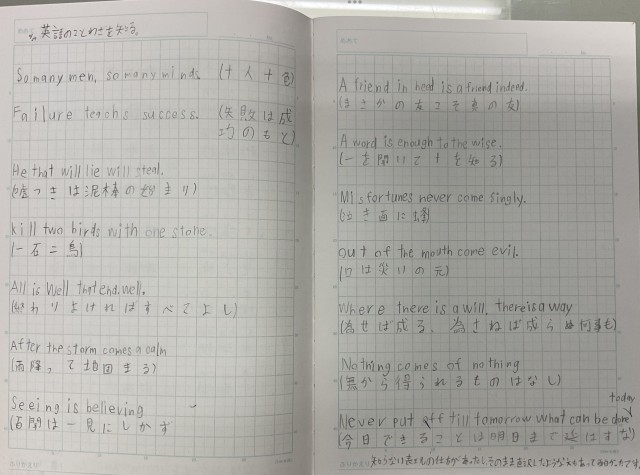 め 英語のことわざを知る。
So many men, so many minds. (十人十色)
Failure teachs success. (失敗は成
功のもと)
He that will lie will steal.
(嘘つきは泥棒の始まり)
kill two birds with one stone.
(一石二鳥)
All is well that end well.
(終わりよければすべてよし)
After the storm comes a calm
(雨降って地固まる)
Seeing is believing
(百聞は一見にしかず
A friend in need is a friend indeed.
(まさかの友こそ真の友)
A word is enough to the wise.
(一を聞いて十を知る)
Misfortunes never come singly.
(泣き面に蜂)
out of the mouth come evil.
(口は災いの元)
Where there is a will, there is a way
(為せば成る、為さねば成らぬ何事も)
Nothing comes of nothing
(無から得られるものはなし)
today
Never put off till tomorrow what can be done
(今日できることは明日まで延ばすな)
知らない
仕方があったしそのまま直訳したような